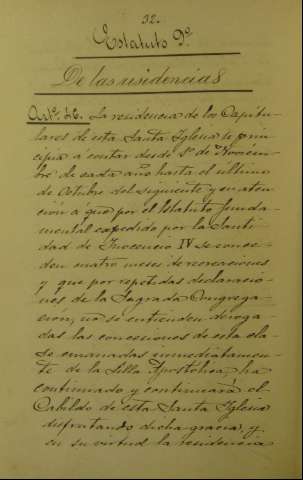 32.
Estatuto 9º
De las residencias
Artº. 46. La residencia de los Capitu-
lares de esta Santa Iglesia se prin-
cipia a contar desde 1º de Noviem-
bre de cada año hasta el último
de Octubre del siguiente y en aten-
ción a que por el Estatuto funda-
mental expedido por la Santi-
dad de Inocencio IV se conce-
den cuatro meses de recreaciones
y que por repetidas declaracio-
nes de la Sagrada Congrega-
cion, no se entienden deroga-
das las concesiones de esta cla-
se emanadas inmediatamen-
te de la Silla Apostólica, ha
continuado y continuará el
Cabildo de esta Santa Iglesia
disfrutando dicha gracia, y
en su virtud la residencia